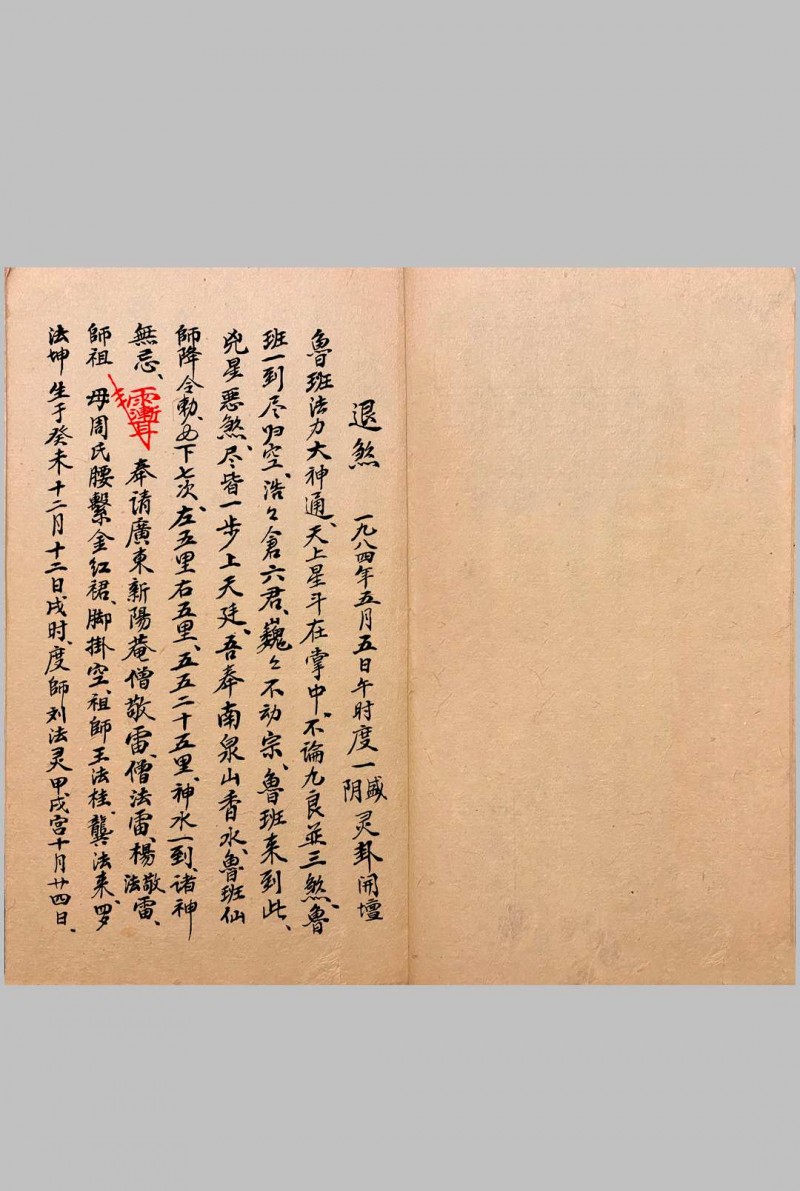 退煞 一九八四年五月五日午时度一盛阴灵卦開壇
魯班法力大神通、天上星斗在掌中、不論九良並三煞、魯
班一到尽归空、浩々倉六君、巍々不动宗、魯班来到此、
兇星惡煞、尽皆一步上天廷、吾奉南泉山香水、魯班仙
師降令勅、下七次、左五里右五里、五五二十五里、神水一到、諸神
無忌、奉請廣東新陽菴僧敬雷、僧法雷、楊敬雷、法
師祖 母周氏腰繫金红裙、脚掛空、祖師王法桂、龔法来、罗
法坤 生于癸未十二月十二日戌时、度師刘法灵甲戌宫十月廿四日、